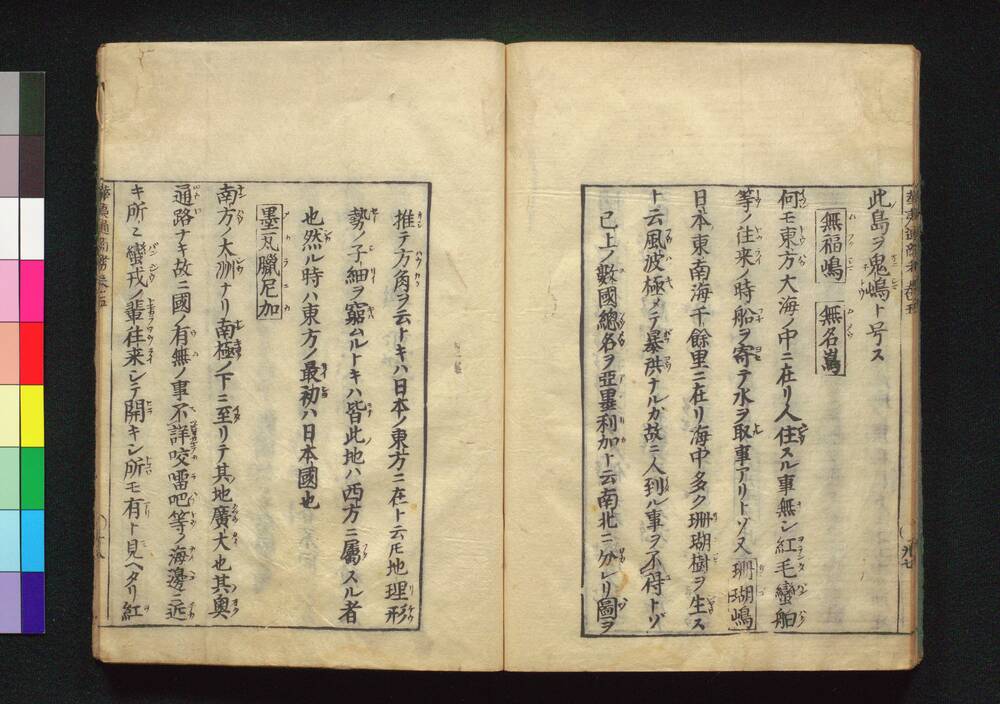 此島ヲ鬼嶋ト号ス
無福嶋 無名嶌
何モ東方大海ノ中ニ在リ人住スル事無シ紅毛蠻舶
等ノ往来ノ時船ヲ寄テ水ヲ取事アリトゾ又珊瑚嶋
日本東南海千餘里ニ在リ海中多ク珊瑚樹ヲ生ス
ト云風波極メテ暴洪ナルカ故ニ人到ル事ヲ不得トゾ
已上ノ數國總名ヲ亞墨利加ト云南北ニ分レリ圖ヲ
推テ方角ヲ云トキハ日本ノ東方ニ在ト云𪜈地理形
勢ノ子細ヲ窮ムルトキハ皆此地ハ西方ニ屬スル者
也然ル時ハ東方ノ最初ハ日本國也
墨瓦臘尼加
南方ノ大洲ナリ南極ノ下ニ至リテ其地廣大也其奥
通路ナキ故ニ國ノ有無ノ事不詳咬𠺕吧等ノ海邊ニ近
キ所ニ蠻戎ノ輩往来シテ開キシ所モ有ト見ヘタリ紅